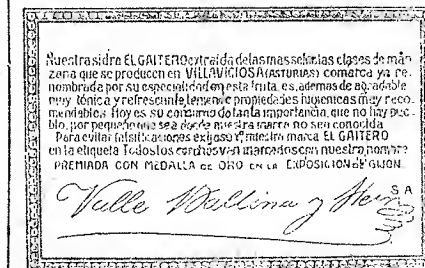 Nuestra sidra EL GAITERO extraida de las mas selectas clases de man
zana que se producen en VILLAVICIOSA (ASTURIAS) comarca ya re
nombrada por su especialidad en esta fruta, es, ademas de agradable
muy tónica y refrescante, teniendo propiedades higienicas muy reco
mendables. Hoy es su consumo de tanta importancia, que no hay pue
blo, por pequeño que sea donde nuestra marca no sea conocida
Para evitar falsificaciones exijase nuestra marca EL GAITERO
en la etiqueta Todos los corchos van marcados con nuestro nombre
PREMIADA CON MEDALLA DE ORO EN LA EXPOSICION DE GIJON
Valle Ballina y
S A